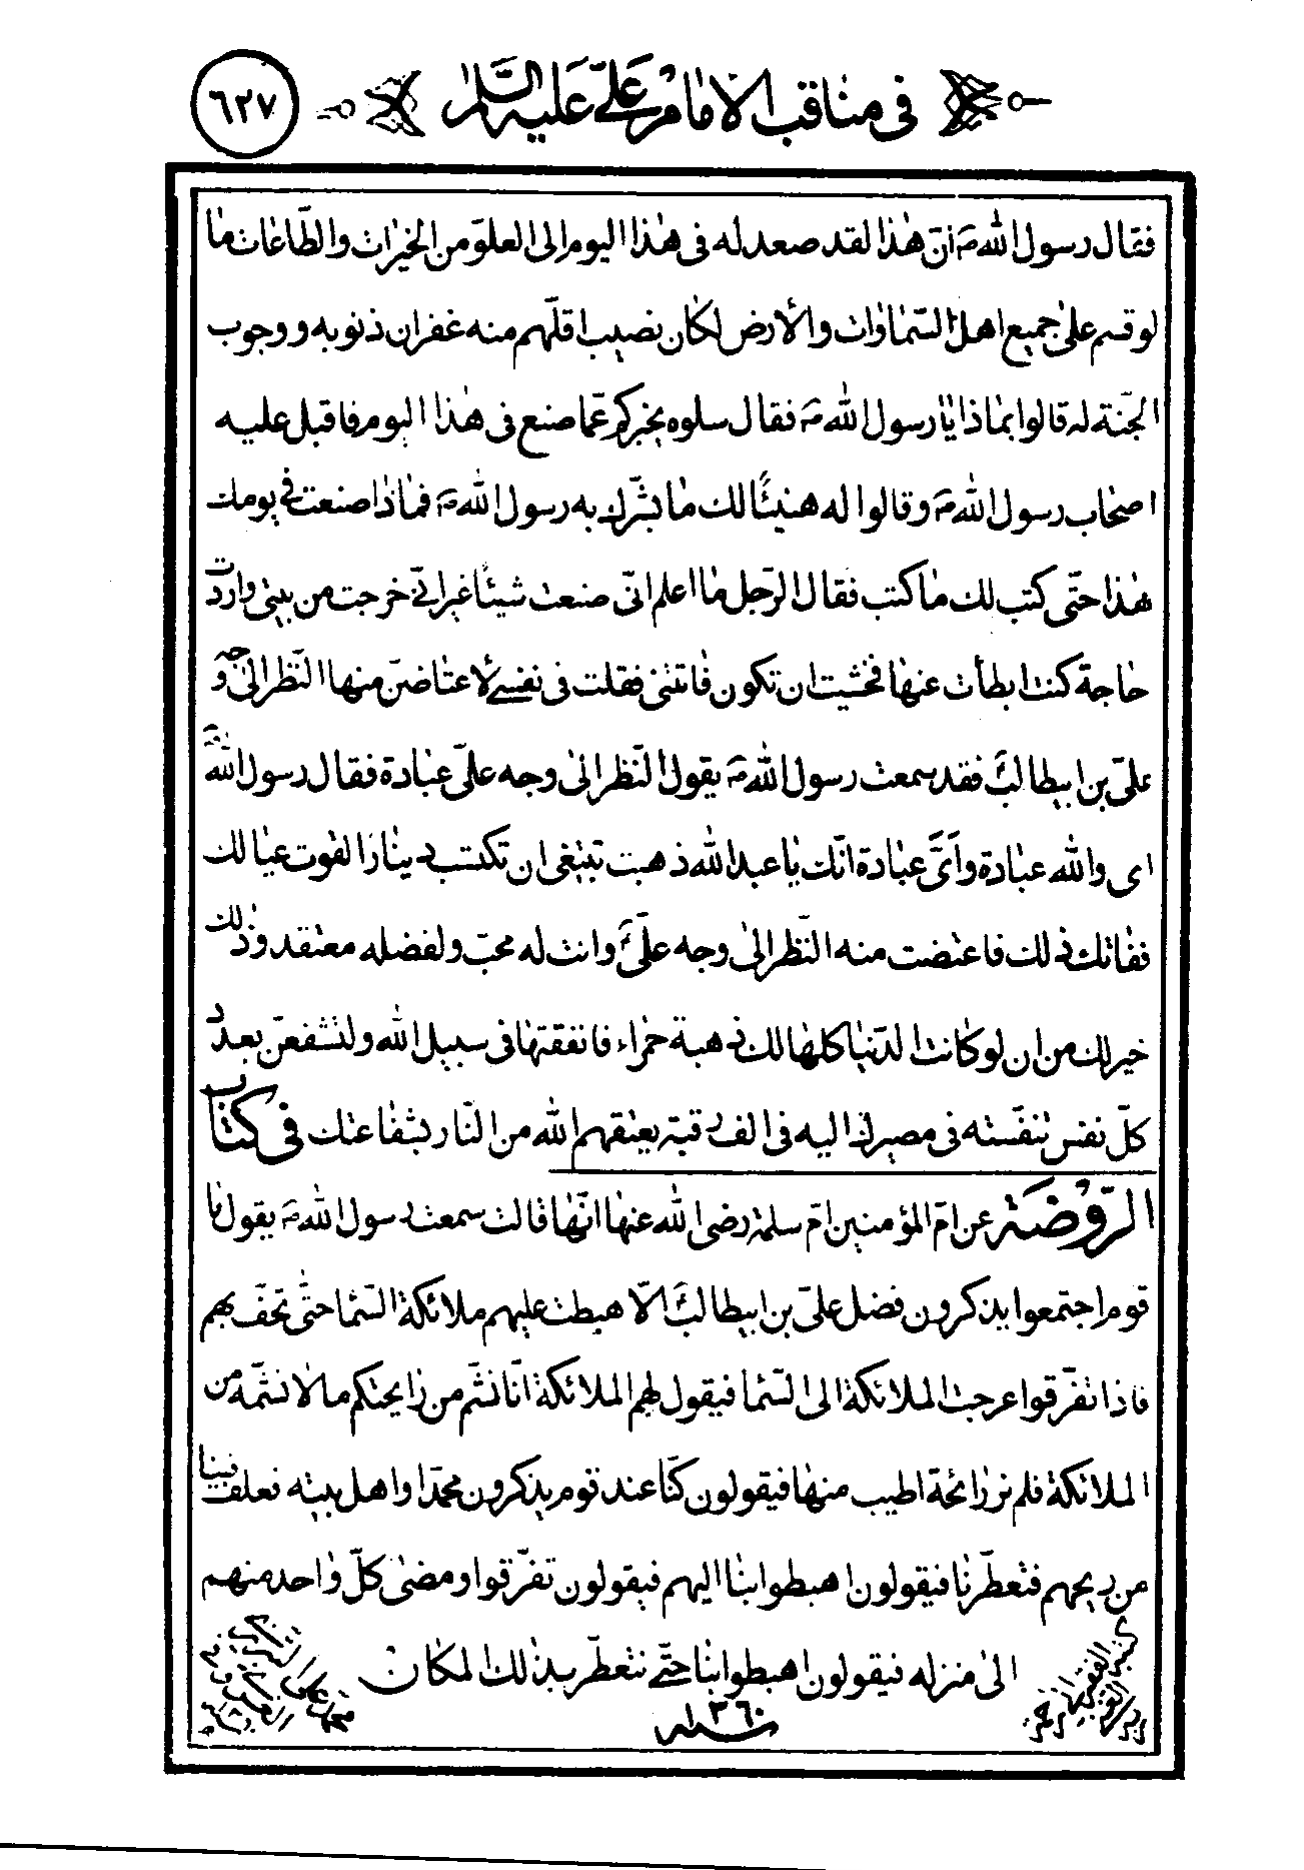 في مناقب الامام علي عليه السلام ٦٢٧
فقال رسول الله ص انّ هذا لقد صعد له في هذا اليوم الى العلوّ من الخيرات والطّاعات ما
لو قسم على جميع اهل السّماوات والأرض لكان نصيب اقلّهم منه غفران ذنوبه ووجوب
الجنّة له قالوا بماذا يا رسول الله ص فقال سلوه يخبركم عمّا صنع في هذا اليوم فاقبل عليه
اصحاب رسول الله ص وقالوا له هنيئًا لك ما بشّرك به رسول الله ص فماذا صنعت في يومك
هذا حتّى كتب لك ما كتب فقال الرّجل ما اعلم انّى صنعت شيئًا غير انّي خرجت من بيتي واردت
حاجة كنت ابطأت عنها فخشيت ان تكون فاتتني فقلت في نفسي لأعتاضنّ منها النّظر الى وجه
علىّ بن ابيطالب فقد سمعت رسول الله ص يقول النّظر الى وجه علىّ عبادة فقال رسول الله ص
اى والله عبادة وأىّ عبادة انّك يا عبد الله ذهبت تبتغي ان تكتسب دينارًا لقوت عيالك
ففاتك ذلك فاعتضت منه النّظر الى وجه علىّ وانت له محبّ ولفضله معتقد وذلك
خير لك من ان لو كانت الدّنيا كلها لك ذهبة حمراء فانفقتها في سبيل الله ولتشفعنّ بعدد
كلّ نفس تنفّسته في مصيرك اليه في الف رقبة يعتقهم الله من النّار بشفاعتك في كتاب
الرّوضة عن امّ المؤمنين امّ سلمة رضى الله عنها انّها قالت سمعت رسول الله ص يقول ما
قوم اجتمعوا يذكرون فضل علىّ بن ابيطالب الّا هبطت عليهم ملائكة السّما حتّى تحفّ بهم
فاذا تفرّقوا عرجت الملائكة الى السّما فيقول لهم الملائكة انّا نشّم من رايحتكم ما لا نشمّه من
الملائكة فلم نر رائحة اطيب منها فيقولون كنّا عند قوم يذكرون محمّدا واهل بيته فعلق فينا
من ريحهم فتعطّرنا فيقولون اهبطوا بنا اليهم فيقولون تفرّقوا ومضى كلّ واحد منهم
الى منزله فيقولون اهبطوا بنا حتّى نتعطّر بذلك المكان
سنه ١٣٦٠